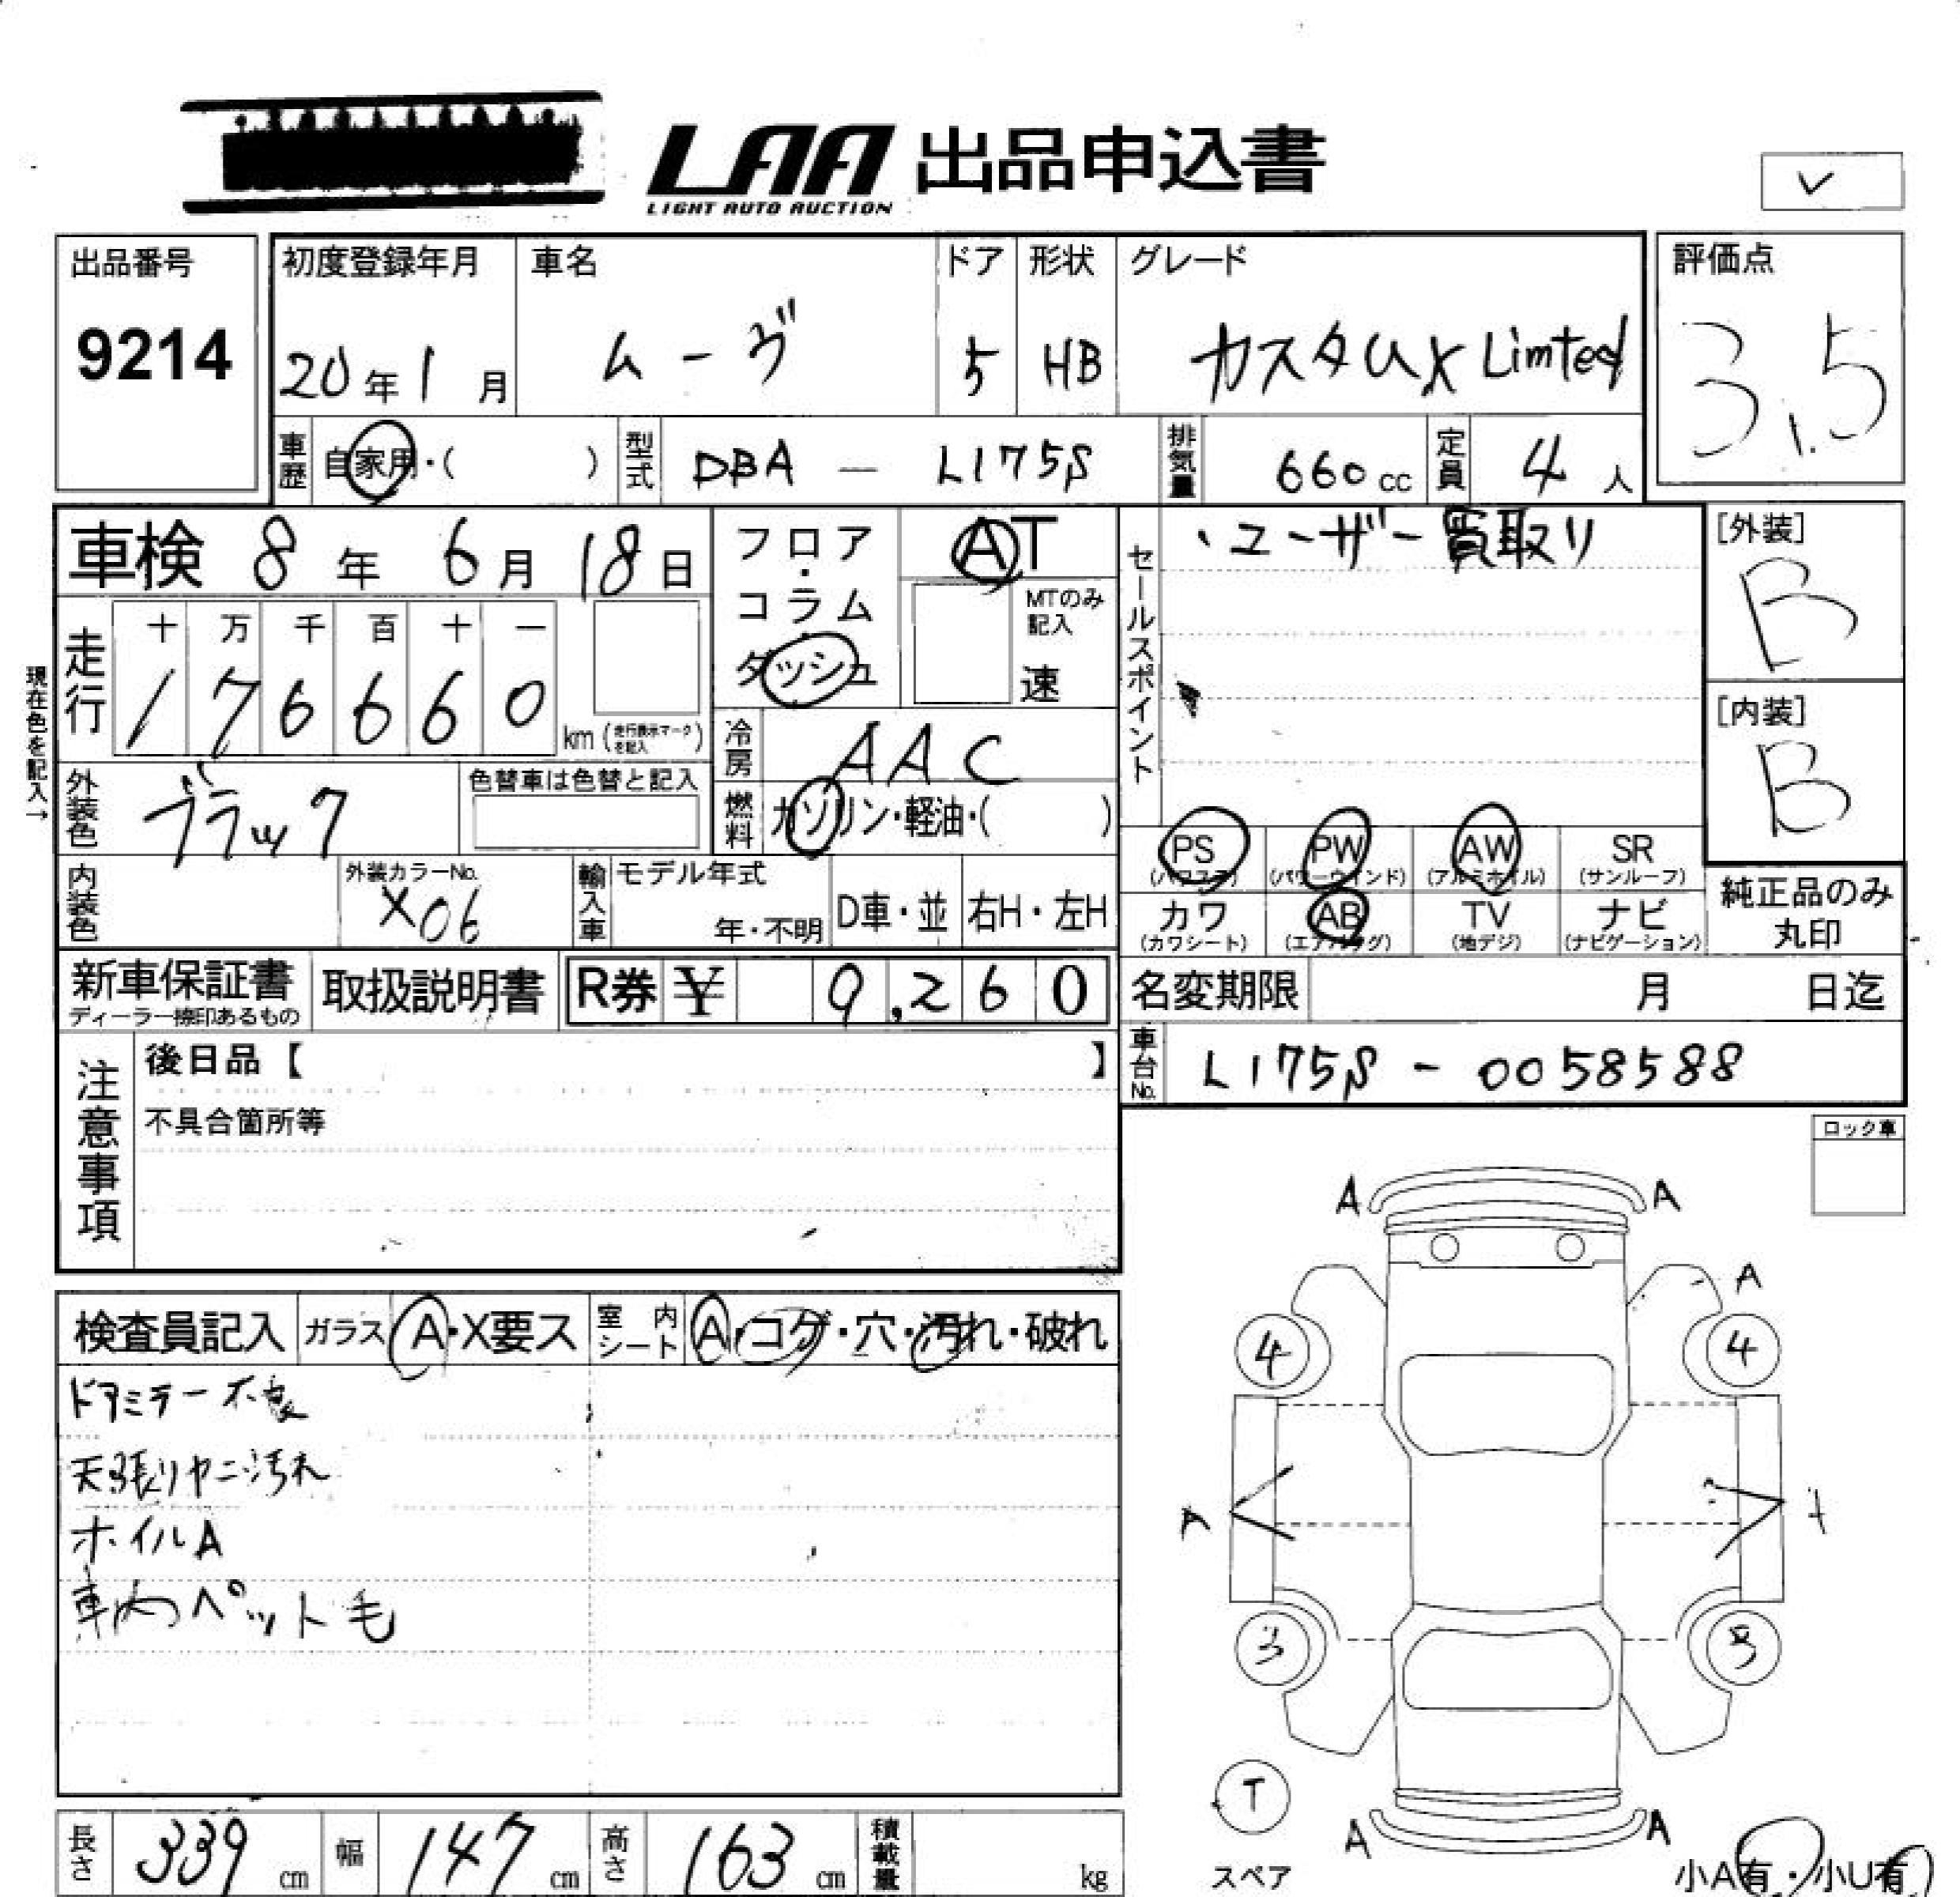 LAA 出品申込書
LIGHT AUTO AUCTION
出品番号
9214
初度登録年月
20年1月
車名
ムーヴ
ドア
5
形状
HB
グレード
カスタムX Limted
評価点
3.5
車歴 自家用・( )
型式 DBA — L175S
排気量 660cc
定員 4人
車検 8年 6月 18日
フロア・コラム・ダッシュ
AT
MTのみ記入
速
セールスポイント
・ユーザー買取り
[外装]
B
[内装]
B
現在色を記入→
走行
十 万 千 百 十 一
1 7 6 6 6 0 km (走行表示マークを記入)
冷房 AAC
外装色 ブラック
色替車は色替と記入
燃料 ガソリン・軽油・( )
PS (パワステ) PW (パワーウインド) AW (アルミホイル) SR (サンルーフ)
カワ (カワシート) AB (エアバッグ) TV (地デジ) ナビ (ナビゲーション)
純正品のみ丸印
内装色
外装カラーNo.
X06
輸入車 モデル年式 年・不明 D車・並 右H・左H
新車保証書
ディーラー捺印あるもの
取扱説明書
R券 ¥ 9,260
名変期限 月 日迄
車台No. L175S - 0058588
注意事項
後日品【 】
不具合箇所等
ロック車
検査員記入 ガラス A・X要ス 室内シート A・コゲ・穴・汚れ・破れ
ドアミラー不良
天張りヤニ汚れ
ホイルA
車内ペット毛
A A
A
4 4
A
3
T
スペア
A A
小A有・小U有
長さ 339cm 幅 147cm 高さ 163cm 積載量 kg